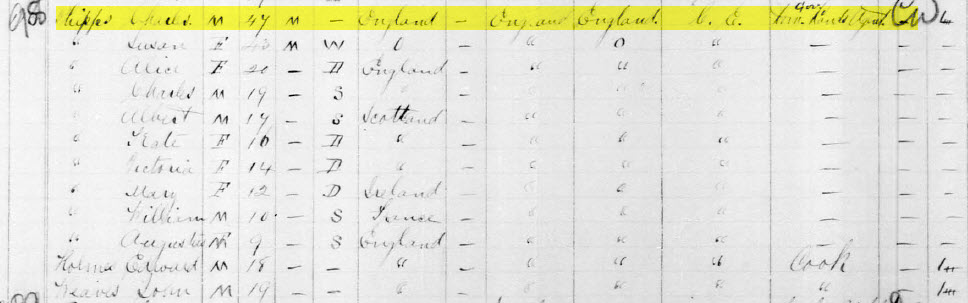 98 Phipps Charles M 47 M - England - England England C. E. Gov. Lands Agent
" Susan F 43 M W O - " O " -
" Alice F 20 - D England - " " " -
" Charles M 19 - S " - " " " -
" Albert M 17 - S Scotland - " " " -
" Kate F 16 - D " - " " " -
" Victoria F 14 - D " - " " " -
" Mary F 12 - D Ireland - " " " -
" William M 10 - S France - " " " -
" Augustus M 9 - S England - " " " -
Holmes Edward M 18 - - " - " " " Cook
Weaves John M 19 - - " - " " " "